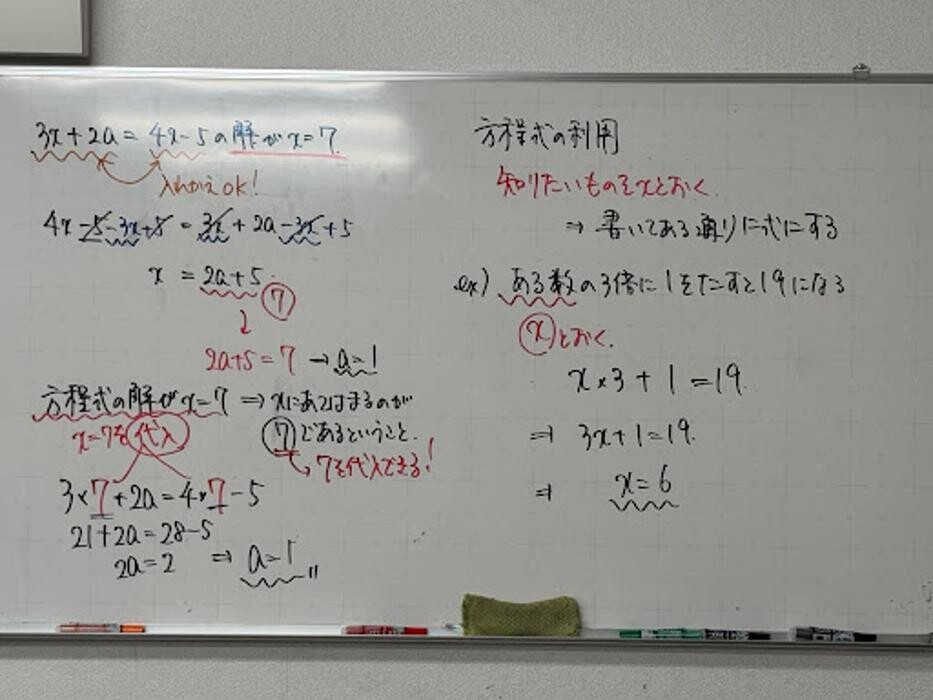 3x+2a=4x-5の解がx=7
入れかえOK!
4x-5-3x+5=3x+2a-3x+5
x=2a+5
7
2a+5=7→a=1
方程式の解がx=7⇒xにあてはまるのが
x=7を代入
7であるということ。
7を代入できる!
3×7+2a=4×7-5
21+2a=28-5
2a=2⇒a=1
方程式の利用
知りたいものをxとおく。
⇒書いてある通りに式にする
ex)ある数の3倍に1をたすと19になる
xとおく。
x×3+1=19
⇒3x+1=19.
⇒x=6